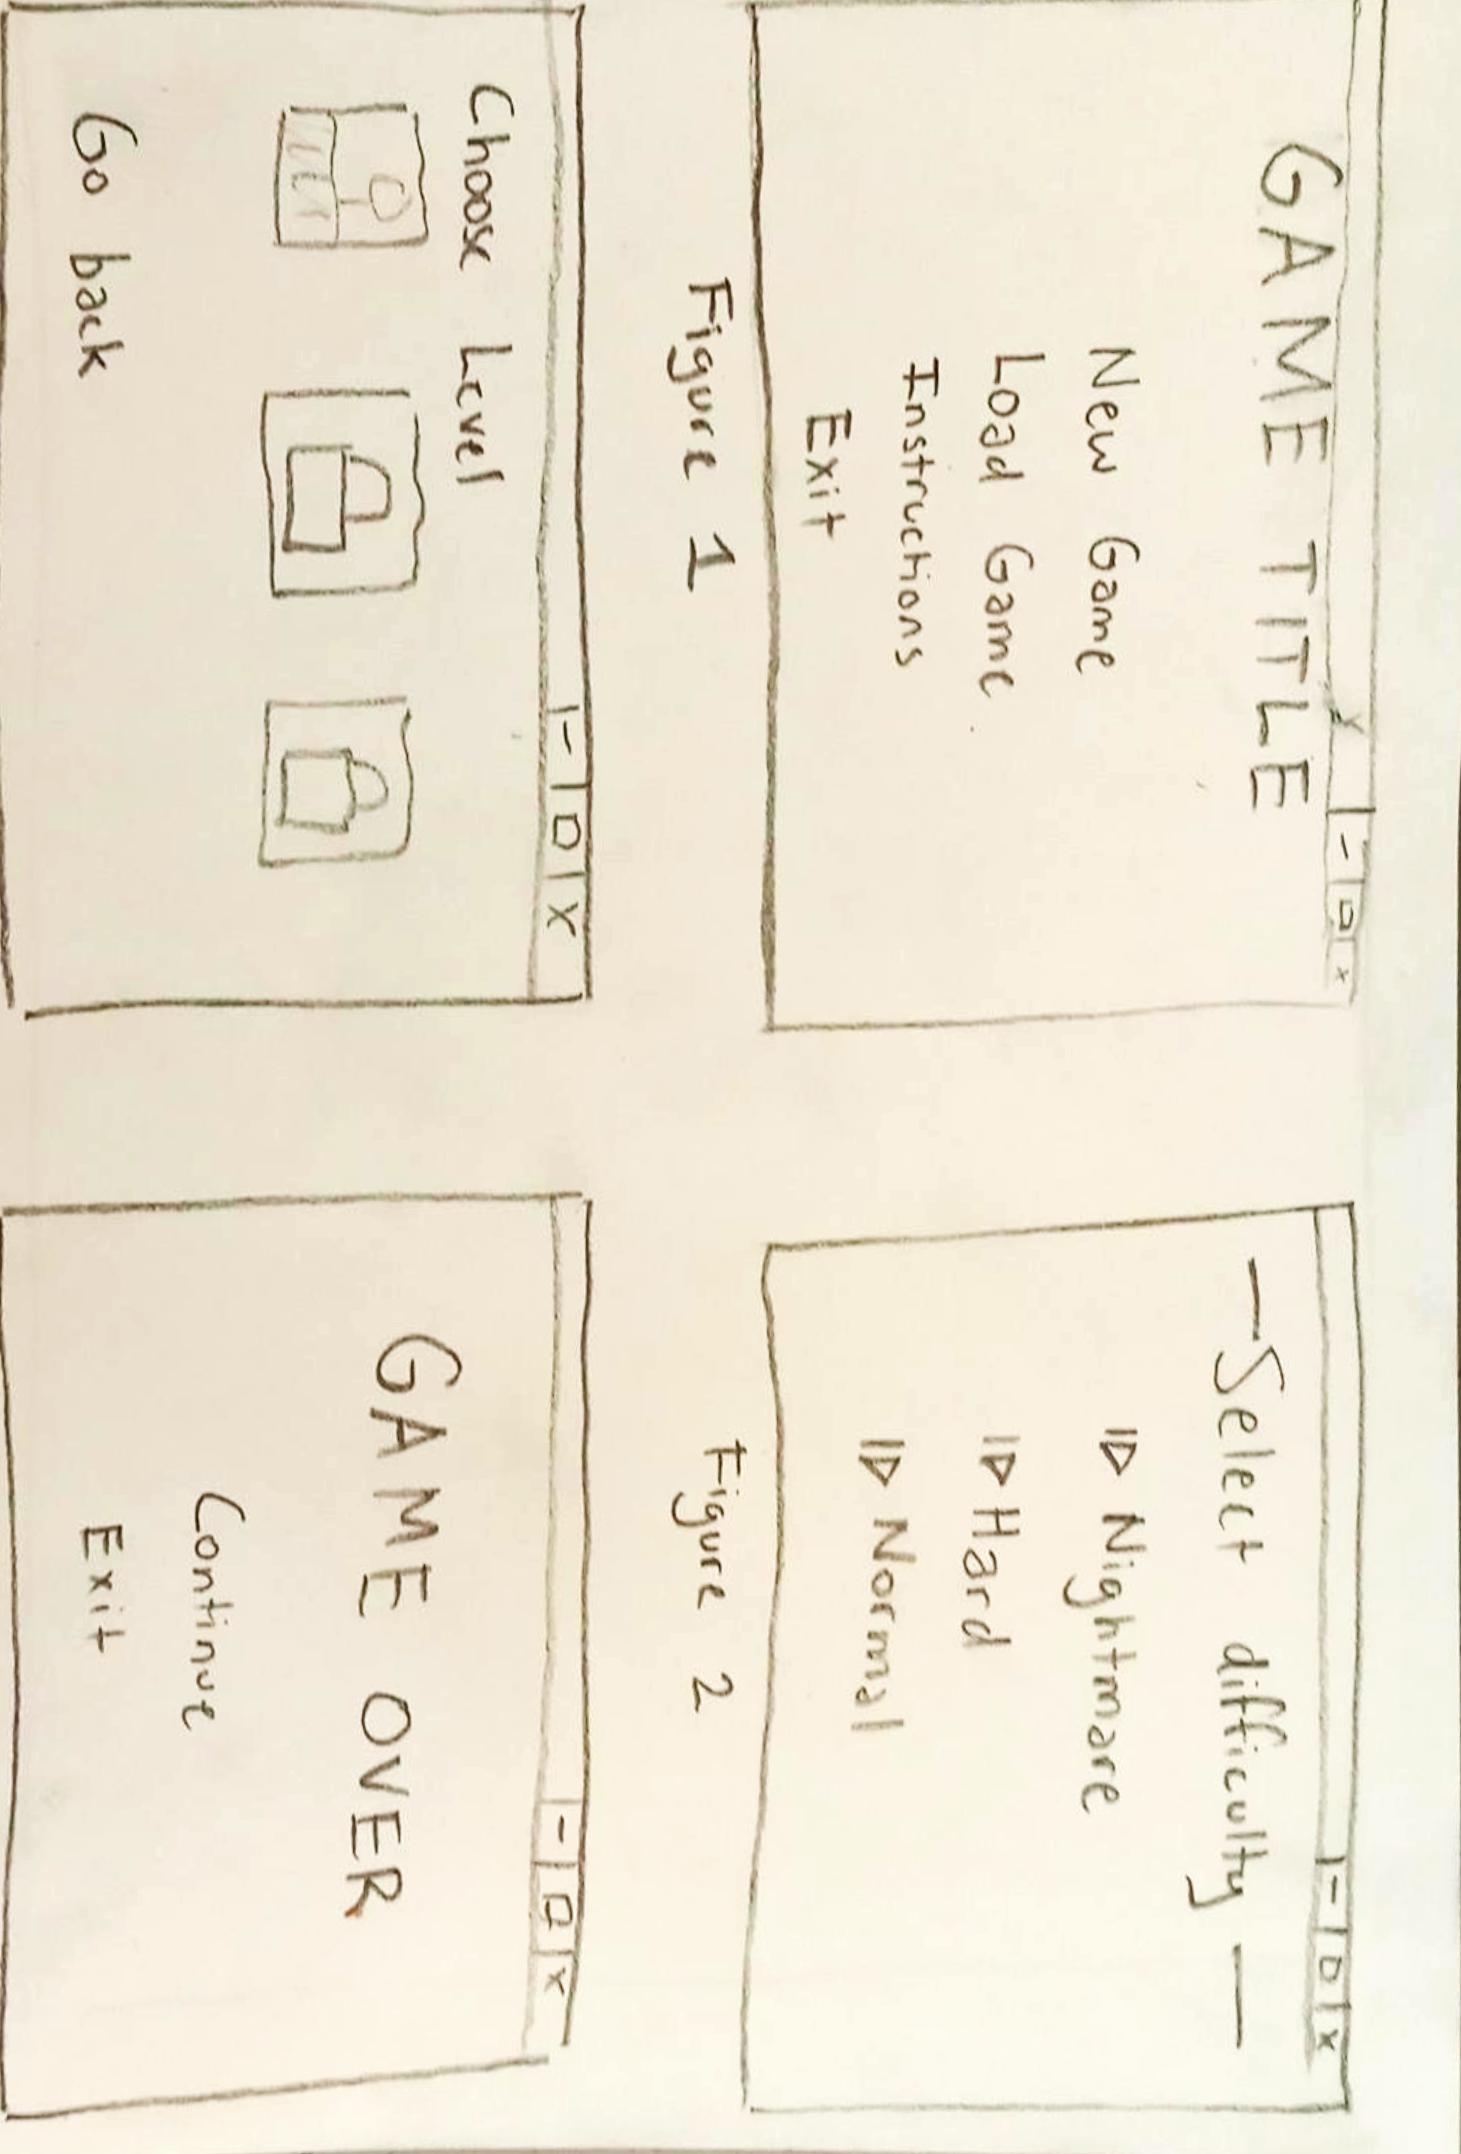 GAME TITLE
New Game
Load Game
Instructions
Exit
Figure 1
—Select difficulty—
Nightmare
Hard
Normal
Figure 2
Choose Level
Go back
GAME OVER
Continue
Exit